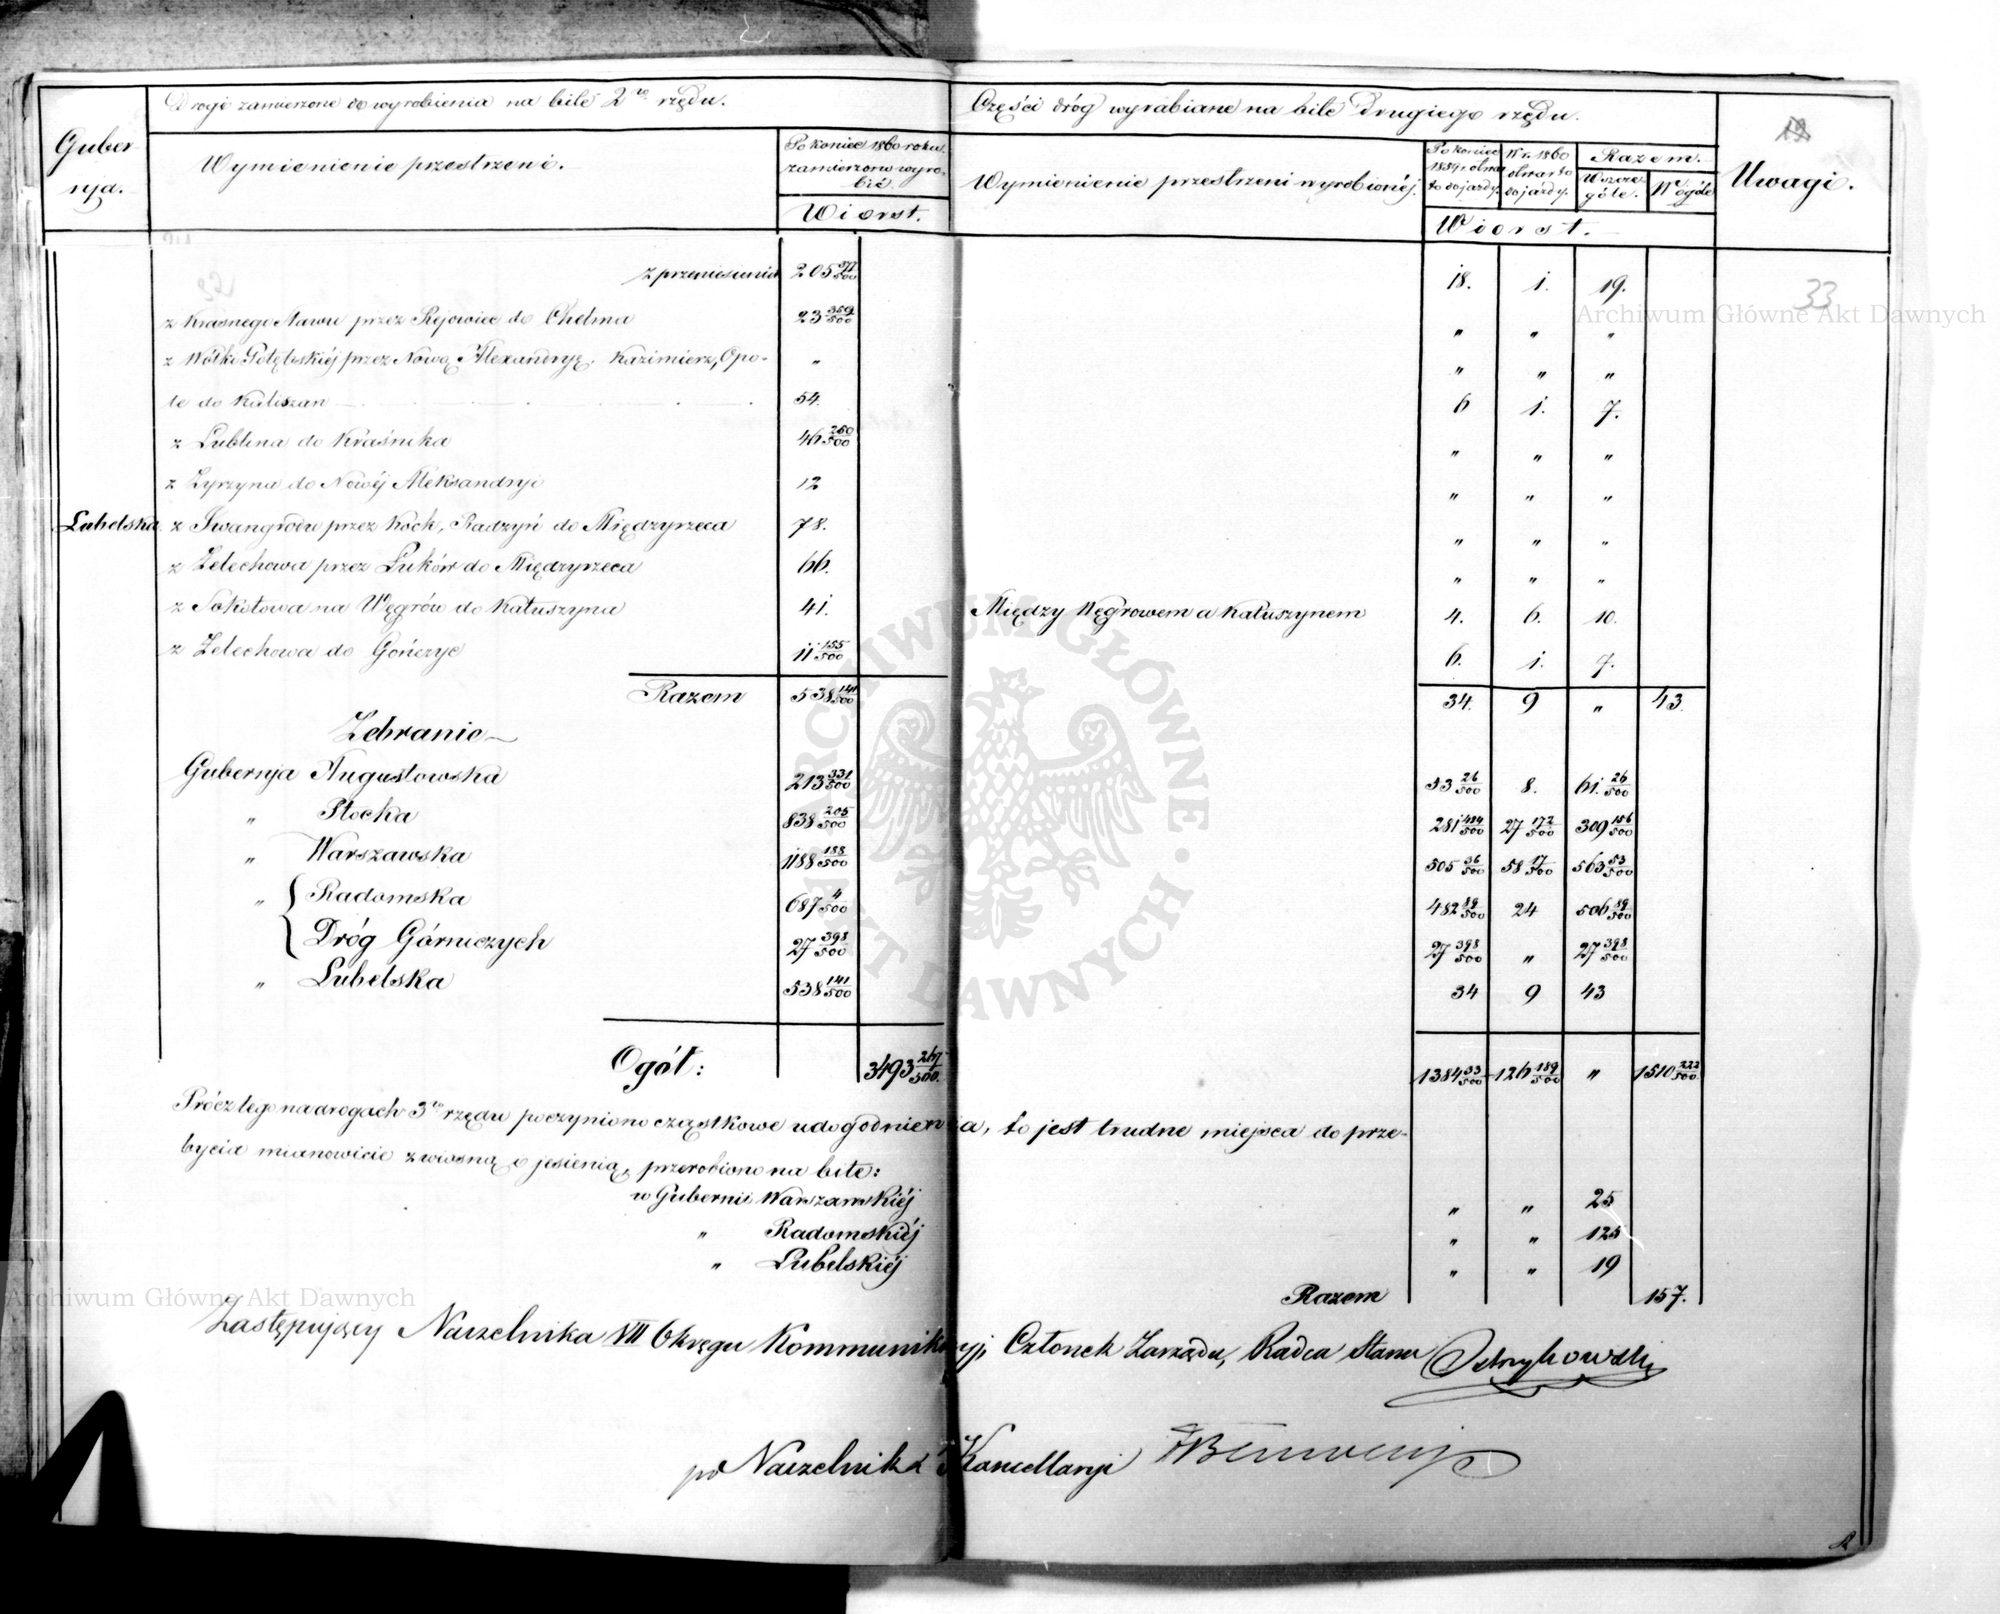 Gubernja.
Drogi zamierzone do wyrobienia na bite 2go rzędu.
Części dróg wyrabiane na bite drugiego rzędu.
Uwagi.
19
Wymienienie przestrzeni.
Po koniec 1860 roku zamierzono wyrobić.
Wymienienie przestrzeni wyrobionéj.
Po koniec 1859 r. otwarto do jazdy.
W r. 1860 otwarto do jazdy.
Razem.
Wszczególe.
W ogóle
Wiorst.
Wiorst.
z przeniesienia 205 18. 1. 19.
33
Archiwum Główne Akt Dawnych
z Krasnego Stawu przez Rejowiec do Chełma 23 359/500 " " "
z Wólki Gołębskiéj przez Nową Alexandryę, Kazimierz, Opo- " " " "
le do Kaliszan 54. 6 1. 7.
z Lublina do Kraśnika 46 260/500 " " "
z Żyrzyna do Nowéj Aleksandryi 12 " " "
Lubelska z Iwangrodu przez Kock, Radzyń do Międzyrzeca 78. " " "
z Żelechowa przez Łuków do Międzyrzeca 66. " " "
z Sokołowa na Węgrów do Kałuszyna 41. Między Węgrowem a Kałuszynem 4. 6. 10.
z Żelechowa do Gończyc 11 155/500 6. 1. 7.
Razem 538 141/500 34. 9 " 43.
Zebranie
Gubernja Augustowska 213 331/500 53 26/500 8. 61. 26/500
" Płocka 838 205/500 281 484/500 27 172/500 309 156/500
" Warszawska 1188 188/500 505 36/500 58 17/500 563 53/500
" Radomska 687 4/500 482 19/500 24 506 19/500
Dróg Górniczych 27 398/500 27 398/500 " 27 398/500
" Lubelska 538 141/500 34 9 43
Ogół: 3493 267/500. 1384 33/500 126 189/500 " 1510 222/500.
Prócz tego na drogach 3go rzędu poczyniono cząstkowe udogodnienia, to jest trudne miejsca do prze-
bycia mianowicie z wiosną i jesienią, przerobiono na bite:
w Gubernii Warszawskiéj " " 25
" Radomskiéj " "
" Lubelskiéj " " 19
Razem 157.
Archiwum Główne Akt Dawnych
Zastępujący Naczelnika VII Okręgu Kommunikacyj, Członek Zarządu, Radca Stanu
po Naczelnika Kancellaryi
ARCHIWUM GŁÓWNE AKT DAWNYCH